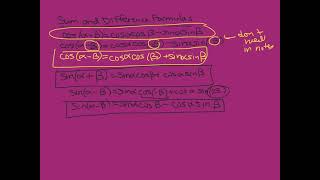 Sum and Difference Formulas
cos(α-β)=cosαcosβ-sinαsinβ
don't need in notes
cos(α-β)=cosαcos(β)+sinαsinβ
sin(α+β)=sinαcosβ+cosαsinβ
sin(α-β)=sinαcos(-β)+cosα sin(-β)
sin(α-β)=sinαcosβ-cosαsinβ